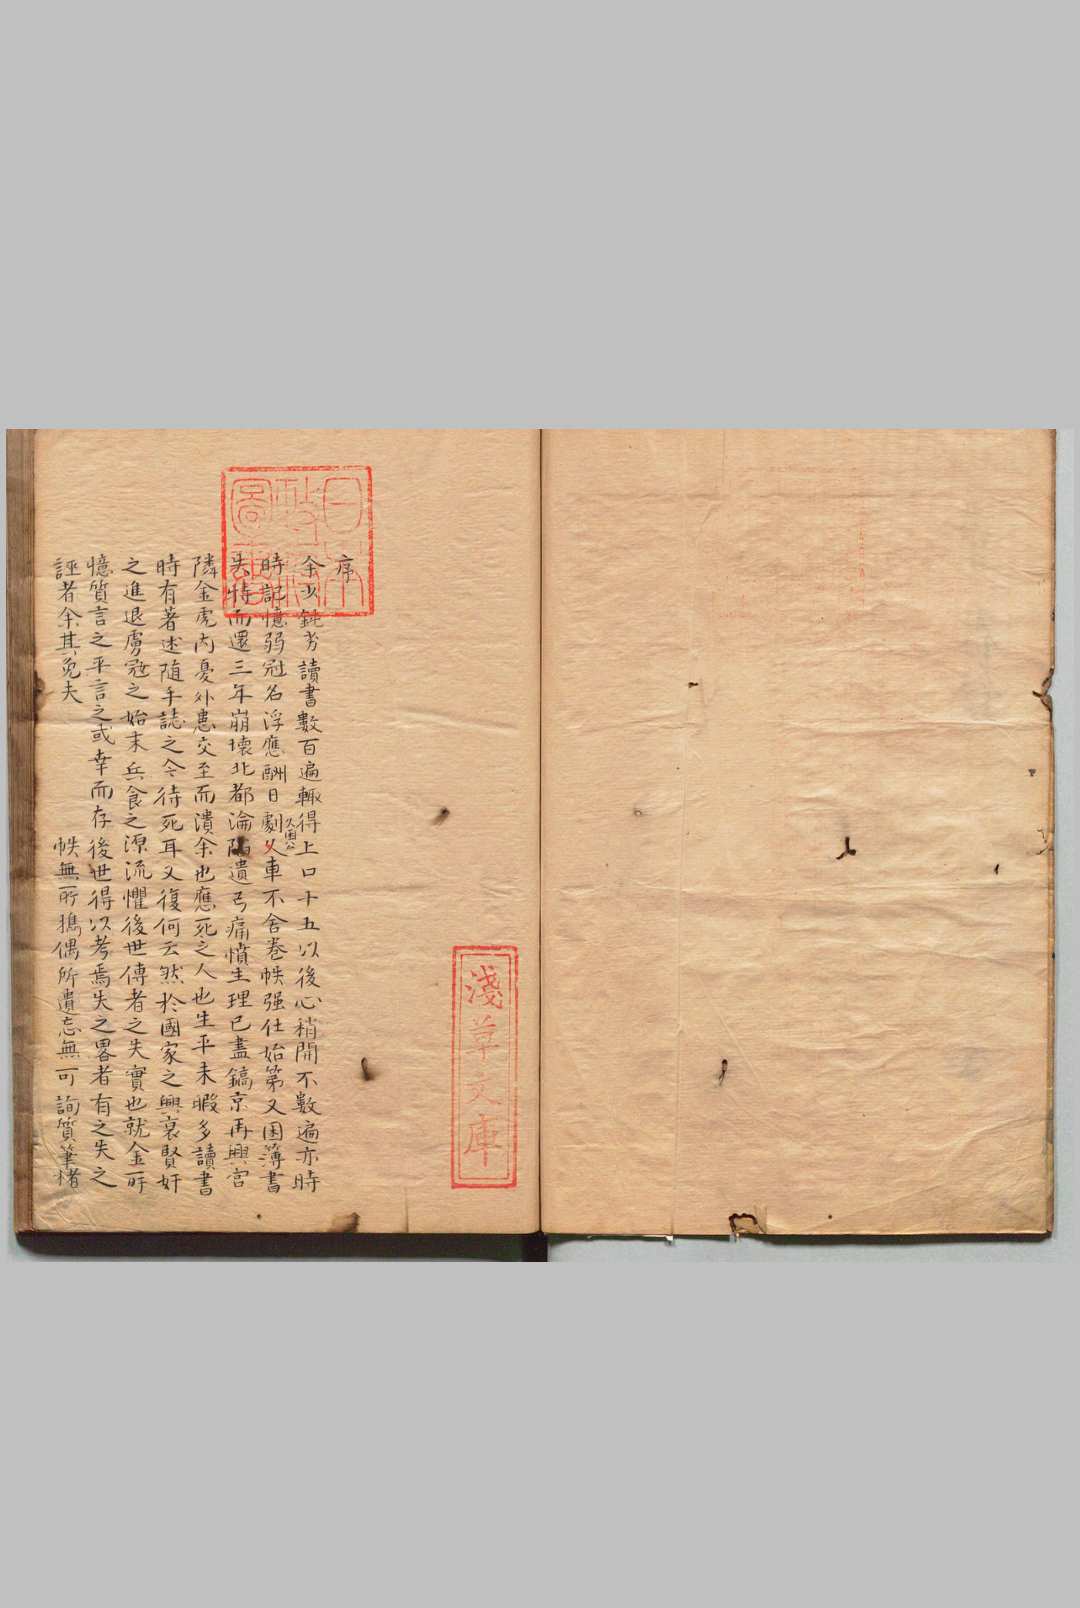 序
余少鈍劣讀書數百遍輒得上口十五以後心稍開不數遍亦時
時記憶弱冠名浮應酬日劇久車不舍卷帙强仕始第又困薄書
失恃而還三年崩壞北都淪陷遺弓痛憤生理已盡鎬京再興宫
隣金虎内憂外患交至而潰余也應死之人也生平未暇多讀書
時有著述隨手誌之今待死耳又復何云然於國家之興衰賢奸
之進退虜冦之始末兵食之源流懼後世傳者之失實也就金所
憶質言之平言之或幸而存後世得以考焉失之畧者有之失之
誣者余其免夫
帙無所攜偶所遺忘無可詢質筆楮
日本政府圖書
淺草文庫